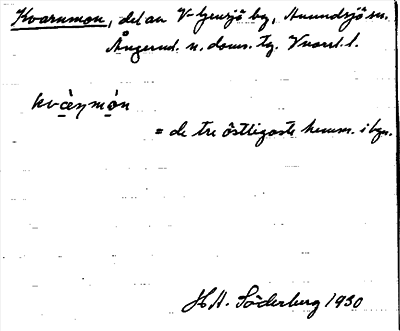 Kvarnmon, del av V-Gensjö by, Anundsjö sn.
Ångerml. n. doms. tg. Vnorrl. l.
kvàɳmòn
= de tre östligaste hemm. i byn.
H A. Söderberg 1930